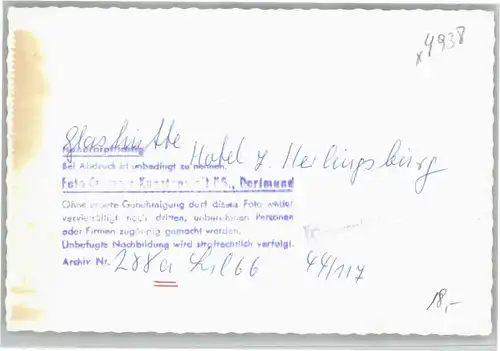 x4938
glashütte
Hotel z. Herlingsburg
Honorarpflichtig
Bei Abdruck ist unbedingt zu nennen:
Foto Dortmund
Ohne unsere Genehmigung darf dieses Foto weder
vervielfältigt noch dritten, unberufenen Personen
oder Firmen zugängig gemacht werden.
Unbefugte Nachbildung wird strafrechtlich verfolgt.
Archiv Nr. 288a 66 44/117
18,-